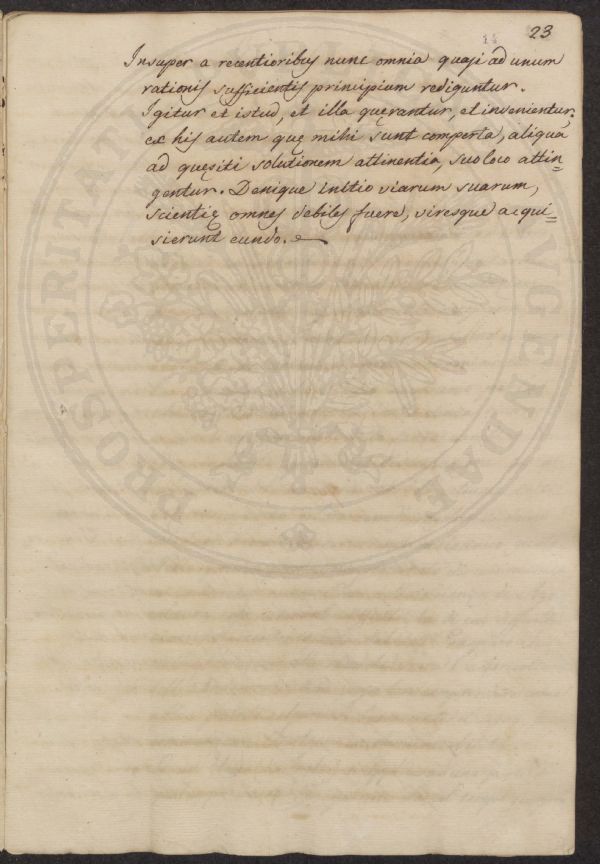 23
Insuper a recentioribus nunc omnia quasi ad unum
rationis sufficientis principium rediguntur.
Igitur et istud, et illa quęrantur, et invenientur;
ex his autem quę mihi sunt comperta, aliqua
ad quęsiti solutionem attinentia, suo loco attin=
gentur. Denique initio viarum suarum,
scientię omnes debiles fuere, viresque acqui=
sierunt eundo.
PROSPERITATI AUGENDAE